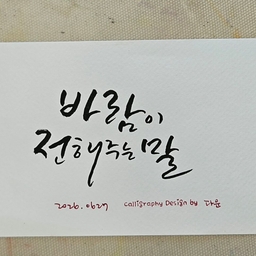 바람이
전해주는 말
2026.0627 Calligraphy Design by 다윤